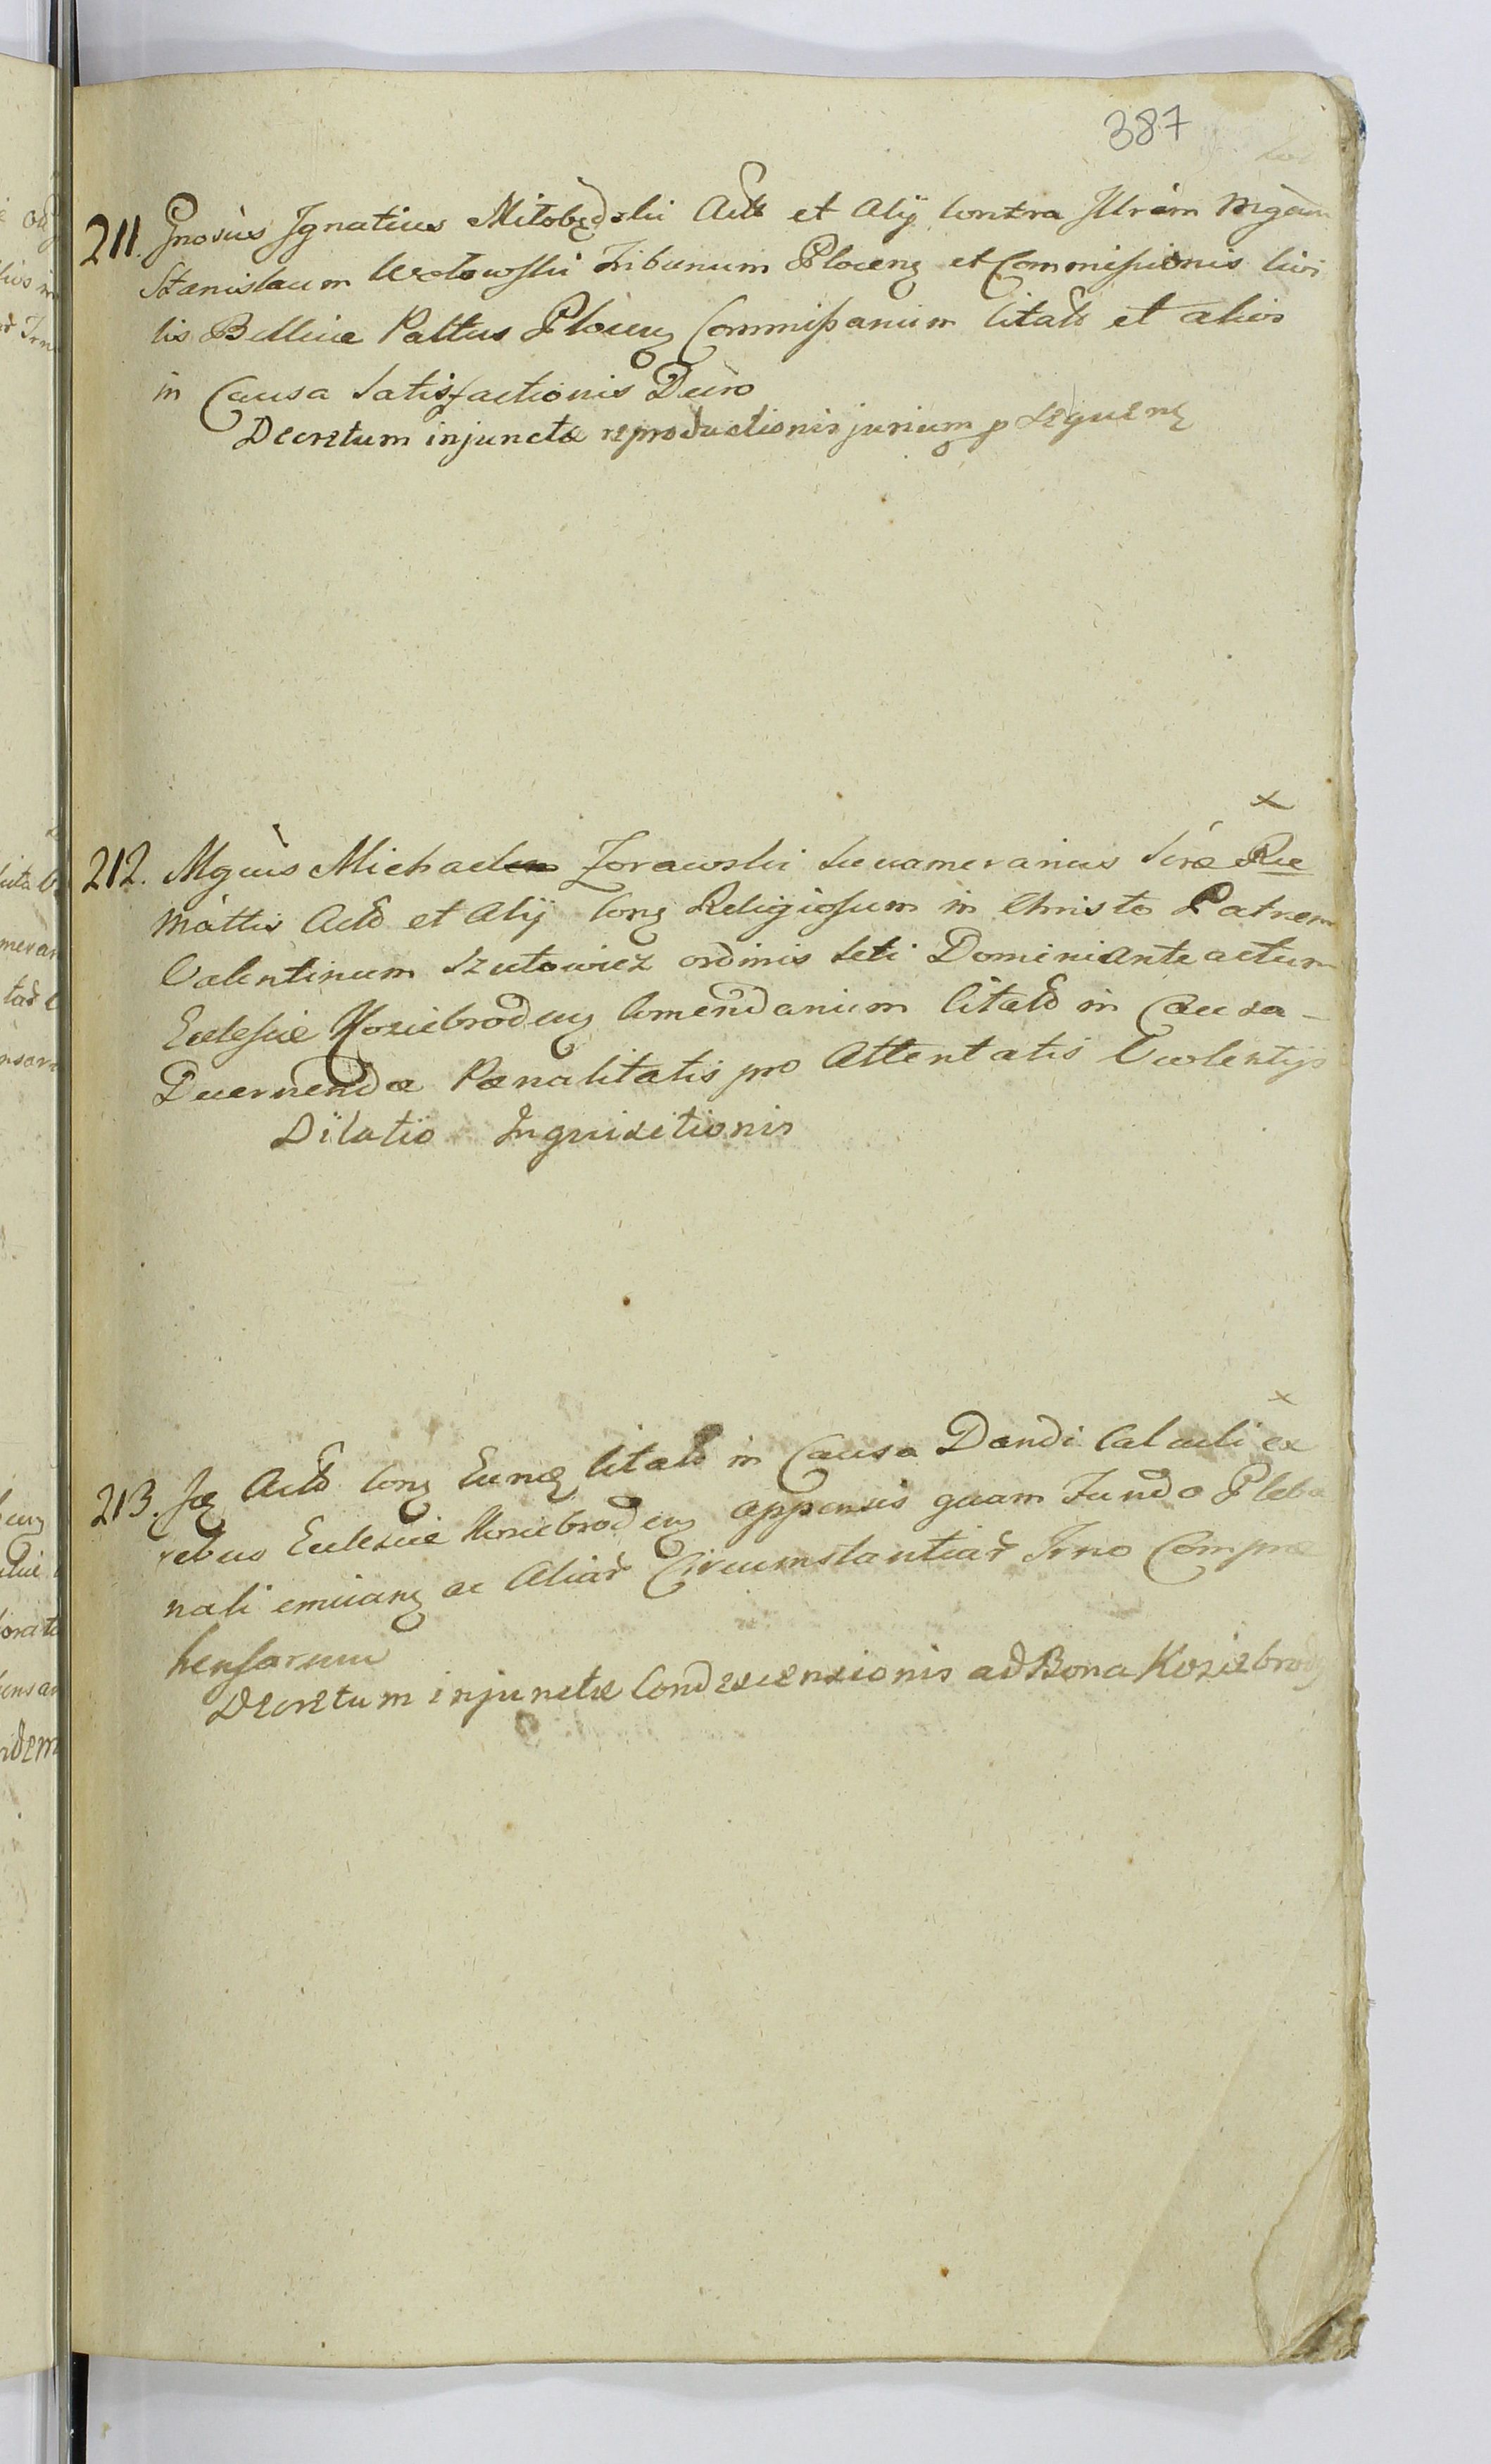 387
211. Gnosus Ignatius Miłobędzki Actt et Alij Contra Illrem Mgcum
Stanislaum Tribunum Plocens et Commissionis Civi
lis Bellicae Palttus Plocens Commissarium Citatt et alios
in Causa Satisfactionis Dcro
Decretum injunctae reproductionis jurium p sequens
x
212. Mgcus Michael Zorawski Succamerarius Srae Rae
Mattis Actt et Alij Cons Religiosum in Christo Patrem
Valentinum Szutowicz ordinis Scti Dominici ante actum
Ecclesiae Koziebrodens Comendarium Citatt in Causa
Decernendae Paenalitatis pro Attentatis Violentijs
Dilatio Inquisitionis
x
213. Actt Cons Citatt in Causa Dandi Calculi ex
rebus Ecclesiae Koziebrodens appensis quam Fundo Pleba
nali ac Aliar Circumstantiar Trno Comprae
hensarum
Decretum injunctae Condescensionis ad Bona Koziebrody